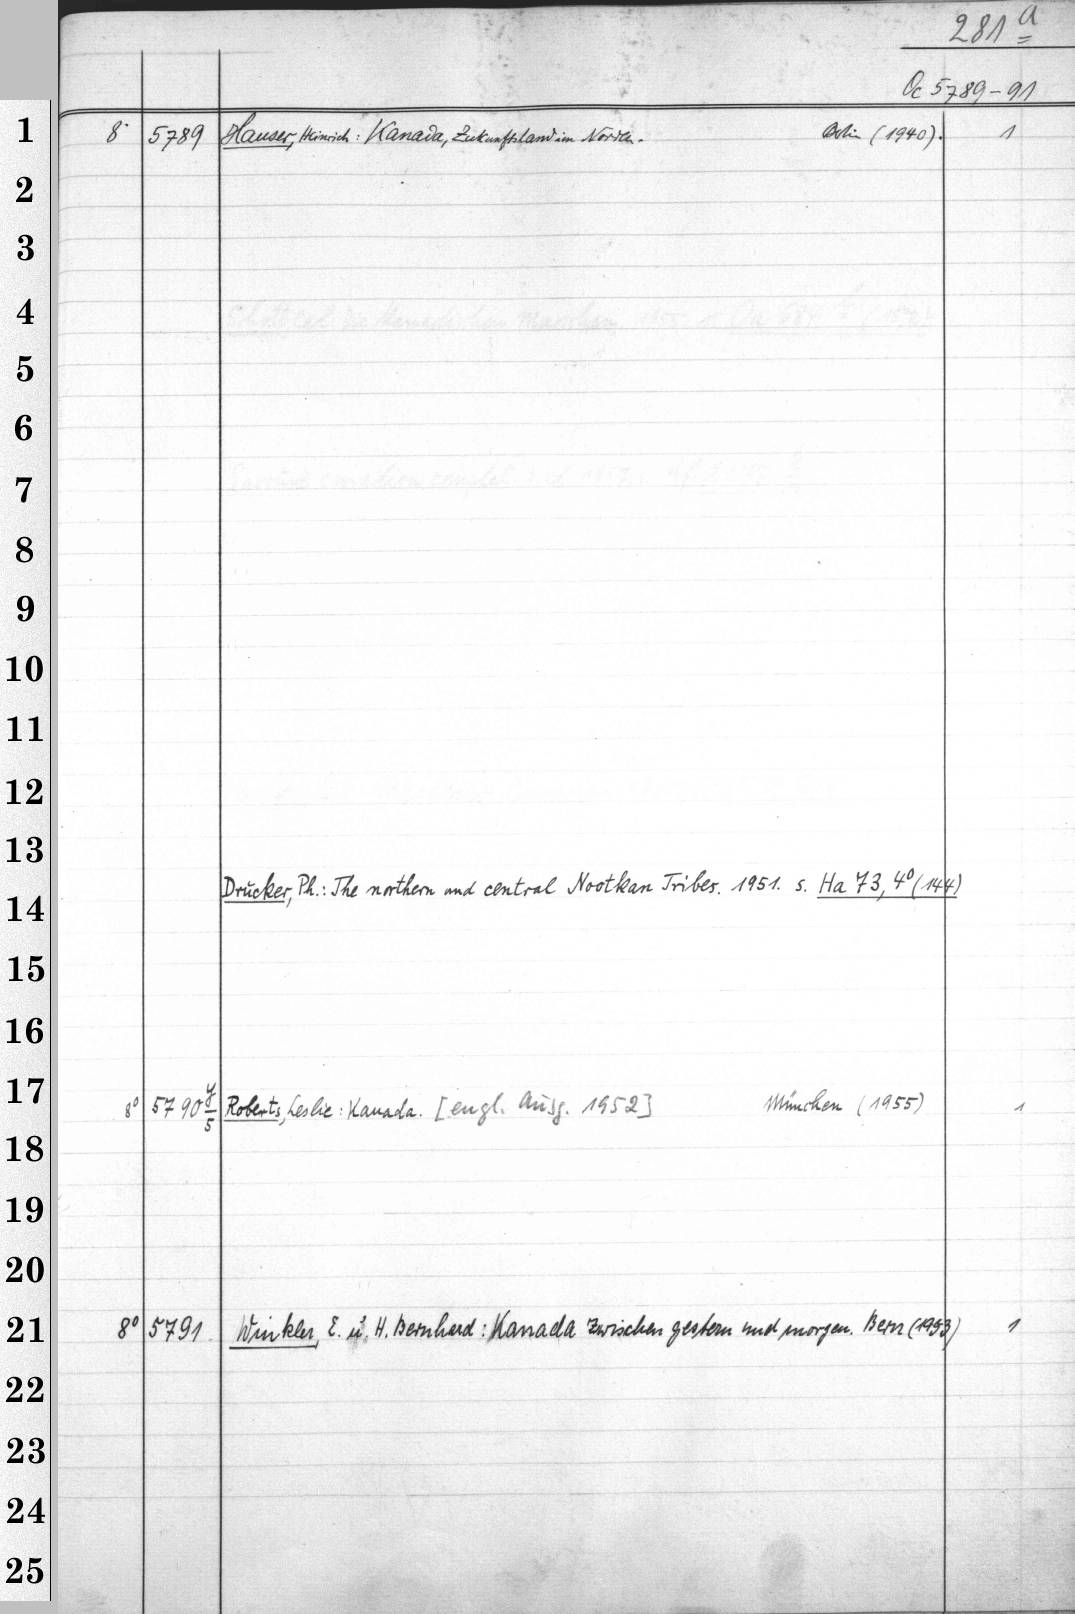 281 a
Oc 5789-91
1 8° 5789 Hauser, Heinrich: Kanada, Zukunftsland im Norden. Berlin (1940). 1
2
3
4
5
6
7
8
9
10
11
12
13
Drucker, Ph.: The northern and central Nootkan Tribes. 1951. s. Ha 73, 4° (144)
14
15
16
17 8° 5790 y/5 Roberts, Leslie: Kanada. [engl. Ausg. 1952] München (1955) 1
18
19
20
21 8° 5791 Winkler, E. u. H. Bernhard: Kanada zwischen gestern und morgen. Bern (1953) 1
22
23
24
25